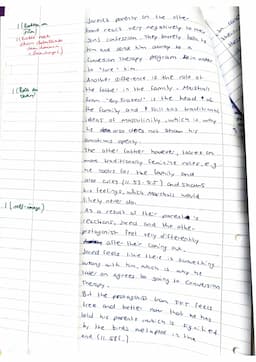 Jared's parents on the other
hand react very negatively to their
son's confession. They barely talk to
him and send him away to a
conversion therapy program in order
to "cure" him.
Another difference is the role of
the father in the family. Marshall
from "Boy Erased" is the head of
the family and has traditional
ideas of masculinity, which is why
he also does not show his
emotions openly.
The other father however, takes on
more traditionally feminine roles, e.g.
he cooks for the family and
also cries and shows
his feelings, which Marshall would
likely never do.
As a result of their parents
reactions, Jared and the other
protagonist feel very differently
after their coming out.
Jared feels like there is something
wrong with him, which is why he
later on agrees to going to conversion
therapy.
But the protagonist from feels
free and better now that he has
told his parents which is
by the birds metaphor in the
end
1 (self-image)